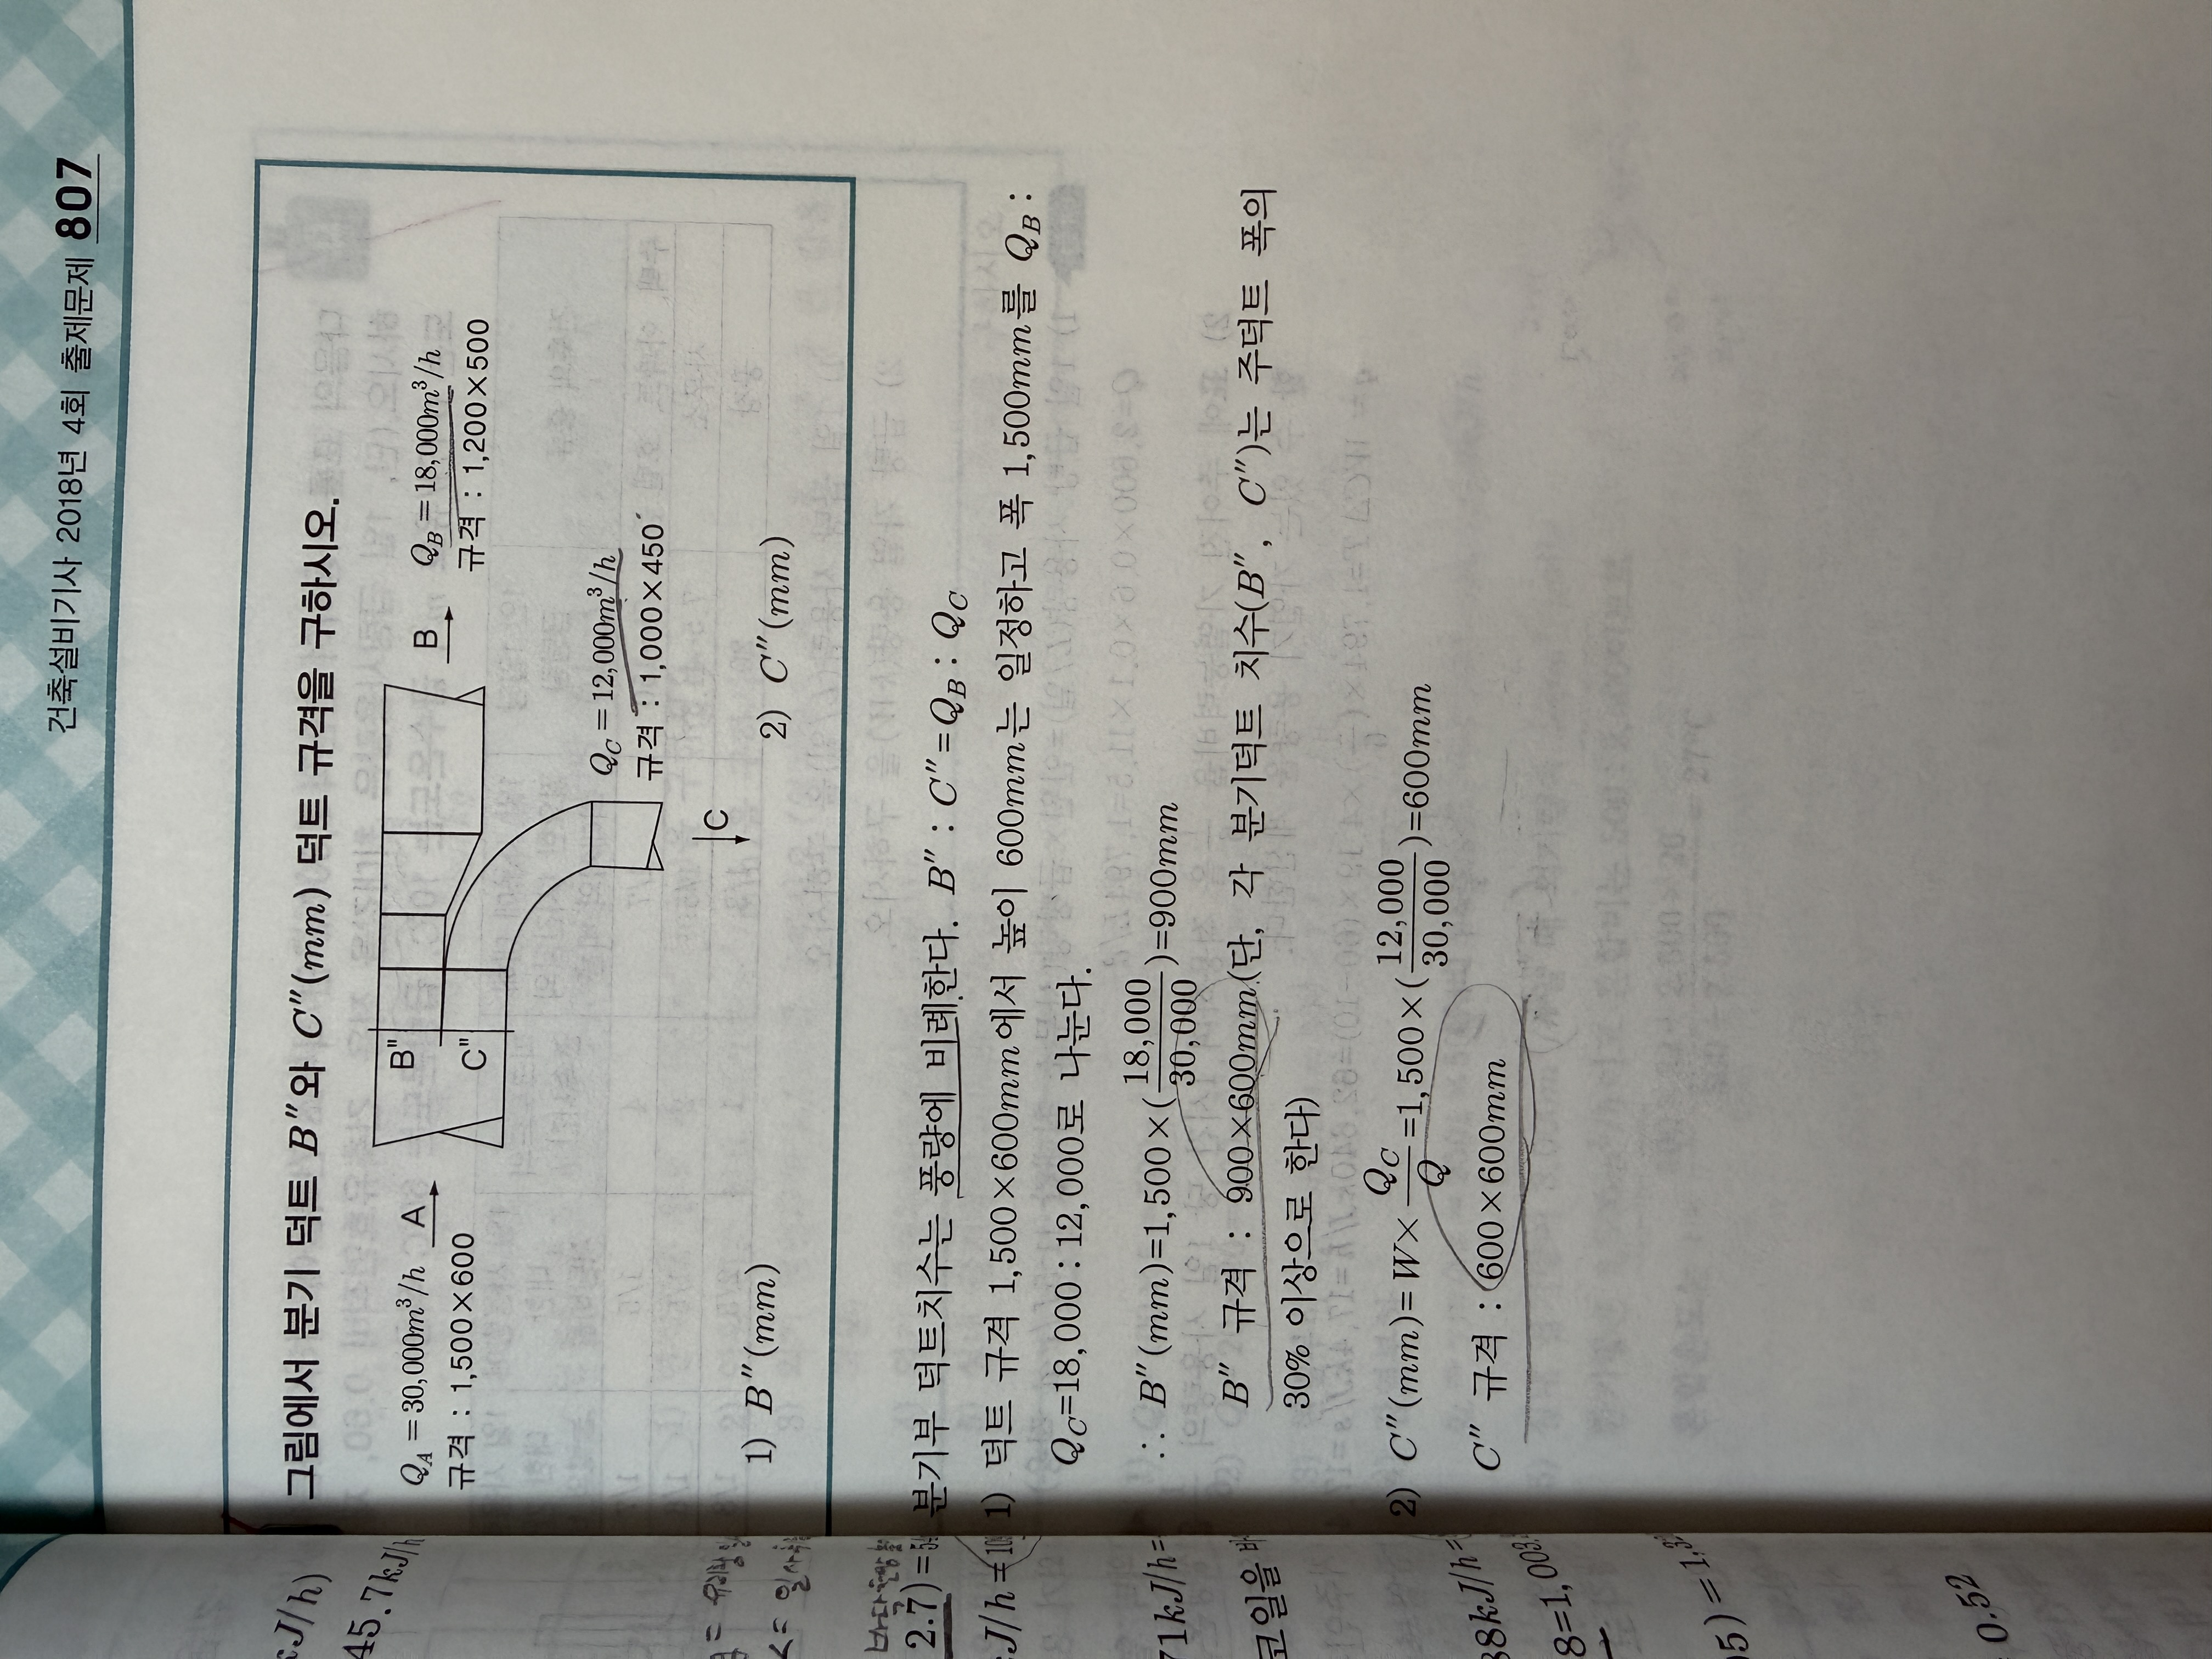 건축설비기사 2018년 4회 출제문제 807
그림에서 분기 덕트 B″와 C″(mm) 덕트 규격을 구하시오.
Q_A = 30,000m³/h
규격 : 1,500×600
A
B"
C"
B
Q_B = 18,000m³/h
규격 : 1,200×500
Q_C = 12,000m³/h
규격 : 1,000×450
C
1) B″(mm) 2) C″(mm)
분기부 덕트치수는 풍량에 비례한다. B″ : C″ = Q_B : Q_C
1) 덕트 규격 1,500×600mm에서 높이 600mm는 일정하고 폭 1,500mm를 Q_B :
Q_C=18,000 : 12,000로 나눈다.
∴ B″(mm)=1,500×(18,000/30,000)=900mm
B″ 규격 : 900×600mm(단, 각 분기덕트 치수(B″, C″)는 주덕트 폭의
30% 이상으로 한다)
2) C″(mm)=W×Q_C/Q=1,500×(12,000/30,000)=600mm
C″ 규격 : 600×600mm
kJ/h)
45.7kJ/h
2.7)=
J/h=
71kJ/h=
코일을
38kJ/h=
8=1,003.
05)=1.3
0.52